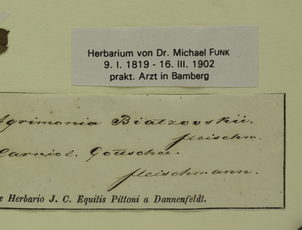 Herbarium von Dr. Michael FUNK
9. I. 1819 - 16. III. 1902
prakt. Arzt in Bamberg
Agrimonia
fleischm.
Carniol. Gottschee.
fleischmann.
Herbario J. C. Equitis Pittoni a Dannenfeldt.